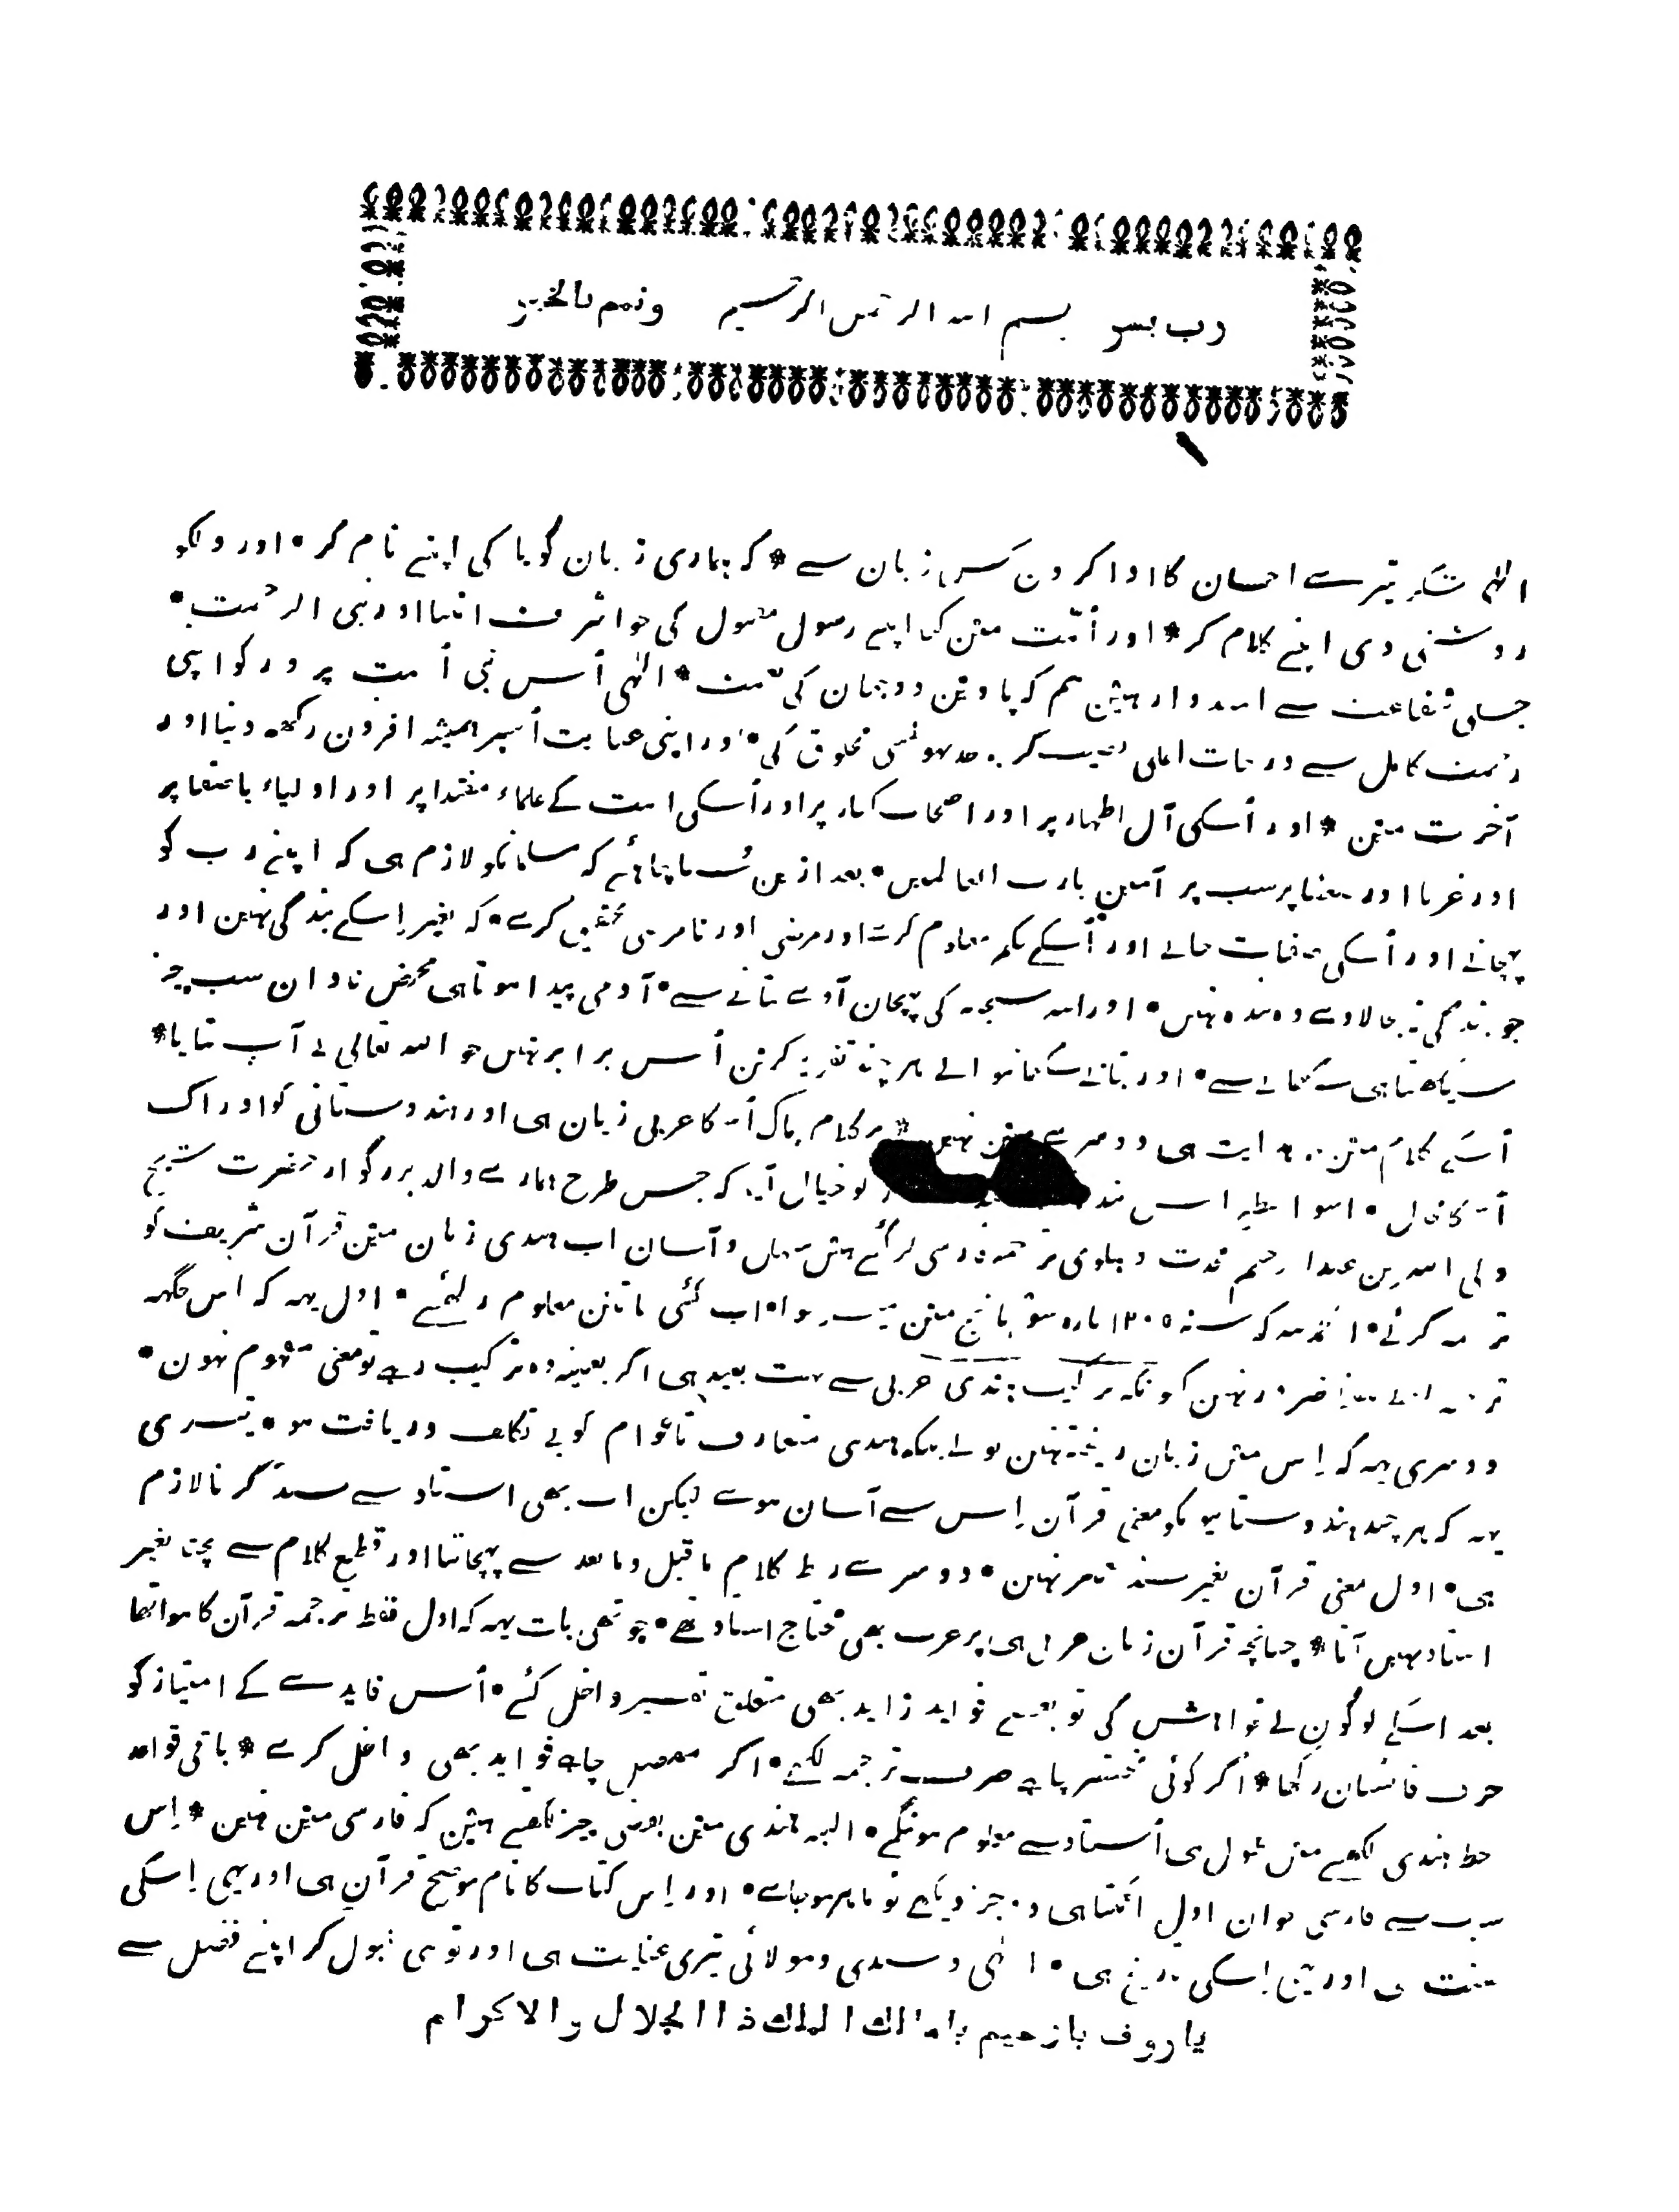 رب یسر بسم الله الرحمن الرحیم وتمم بالخیر
الہی شکر تیرے احسان کا ادا کرون کس زبان سے * کہ ہماری زبان گویا کی اپنے نام کر • اور دلکو
روشنی دی اپنے کلام کر * اور اُمّت مین کیا اپنے رسول مقبول کی جو اشرف انبیا اور نبی الرحمت •
جسکی شفاعت سے امیدوار ہین ہم کہ پاوین دو جہان کی نعمت * الہی اُس نبی اُمت پرور کو اپنی
رحمت کامل سے درجات اعلی نصیب کر جو حد ہو نسی مخلوق کی • اور اپنی عنایت اُسپر ہمیشہ افزون رکھہ دنیا اور
آخرت مین * اور اُسکی آل اطہار پر اور اصحاب کبار پر اور اُسکی امت کے علماء مقتدا پر اور اولیاء باصفا پر
اور غربا اور ضعفا پر سب پر آمین یارب العالمین • بعد ازین سُنا چاہئے کہ مسلمانکو لازم ہی کہ اپنے رب کو
پہچانے اور اُسکی صفات جانے اور اُسکے حکم معلوم کرے اور مرضی اور نامرضی تحقیق کرے • کہ بغیر اِسکے بندگی نہین اور
جو بندگی نہ بجا لاوے وہ بندہ نہین • اور اللہ سبحانہ کی پہچان آوے بتانے سے • آدمی پیدا ہوتا ہی محض نادان سب چیز
سیکھتا ہی سکھانے سے • اور بتانے سکھانیوالے ہر چند تقریر کرین اُس برابر نہین جو اللہ تعالی نے آپ بتایا *
اُسکے کلام مین جو ہدایت ہی دوسرے مین نہین * پر کلام پاک اُسکا عربی زبان ہی اور ہندوستانی کو ادراک
اُسکا محال • اسواسطے اس بندہ کو خیال آیا کہ جس طرح ہمارے والد بزرگوار حضرت شیخ
ولی اللہ بن عبدالرحیم محدث دہلوی ترجمہ فارسی کر گئے ہین سہل و آسان اب ہندی زبان مین قرآن شریف کو
ترجمہ کرئے • الحمد للہ کہ سنہ ۱۲۰۵ بارہ سو پانچ مین میسر ہوا • اب کئی باتین معلوم رکھئے • اول یہہ کہ اس جگہہ
ترجمہ لفظ بلفظ ضرور نہین کیونکہ ترکیب ہندی عربی سے بہت بعید ہی اگر بعینہ وہ ترکیب رہے تو معنی مفہوم نہون •
دوسری یہہ کہ اِس مین زبان ریختہ نہین بولی بلکہ ہندی متعارف تا عوام کو بے تکلف دریافت ہو • تیسری
یہہ کہ ہر چند ہندوستانیونکو معنی قرآن اِس سے آسان ہوئے لیکن اب بھی استاد سے سند کرنا لازم
ہی • اول معنی قرآن بغیر سند معتبر نہین • دوسرے ربط کلام ماقبل و مابعد سے پہچاننا اور قطع کلام سے بچنا بغیر
استاد نہین آتا * چنانچہ قرآن زبان عربی ہی پر عرب بھی محتاج استاد تھے • چوتھی بات یہہ کہ اول فقط ترجمہ قرآن کا ہوا تھا
بعد اسکے لوگون نے خواہش کی تو بعضے فواید زاید بھی متعلق تفسیر داخل کئے • اُس فایدے کے امتیاز کو
حرف فا نشان رکھا * اگر کوئی مختصر چاہے صرف ترجمہ لکھے • اگر مفصل چاہے فواید بھی داخل کرے * باقی قواعد
خط ہندی لکھنے مین طول ہی اُستاد سے معلوم ہونگے • البتہ ہندی مین بعضی چیز لکھتے ہین کہ فارسی مین نہین * اِس
سبب سے فارسی خوان اول اٹکتا ہی دو جز دیکھے تو ماہر ہو جاے • اور اِس کتاب کا نام موضح قرآن ہی اور یہی اِسکی
صفت ہی اور یہی اِسکی تاریخ ہی • الہی و سیدی و مولائی تیری عنایت ہی اور تو ہی قبول کر اپنے فضل سے
یاروف یا رحیم یا مالك الملك ذا الجلال والاکرام